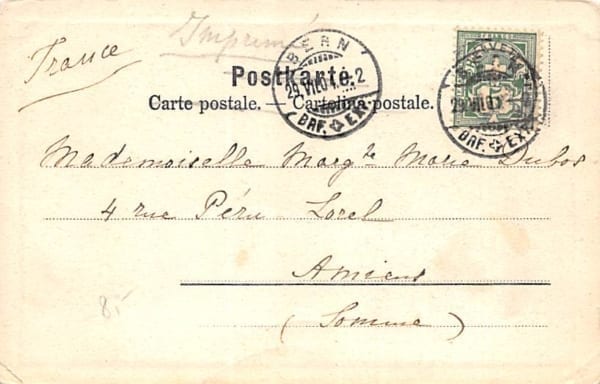 France
Imprimé
Postkarte.
Carte postale. — Cartolina postale.
BERN
29.VII.04. 2
BRF. EXP.
BRF. EXP.
Mademoiselle Margte Maria Dubos
4 rue Péru Lorel
Amiens
(Somme)
8.-